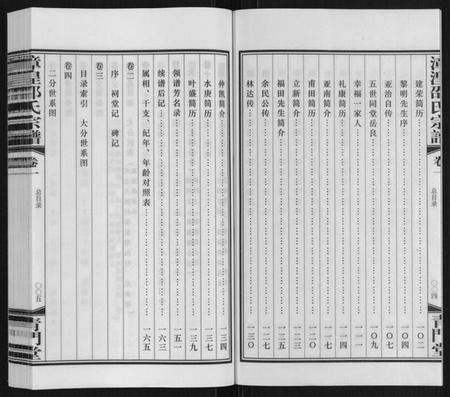 漳湟邵氏宗譜
卷一
总目录
〇〇四
青門堂
建龙简历 一〇二
黎明先生序 一〇四
亚治自传 一〇五
五世同堂岳良 一〇九
幸福一家人 一一二
礼康简历 一一四
亚南简介 一一六
甫田简历 一二〇
立新简介 一二一
福田先生简介
余民公传
林达传 一三〇
仲凯简介 一三四
水庚简历 一三七
叶盛简历 一三九
领谱芳名录 一五一
续谱后记 一六三
属相、干支、纪年、年龄对照表 一六五
卷二
序 祠堂记 碑记
卷三
目录索引 大分世系图
卷四
二分世系图
漳湟邵氏宗譜
卷一
总目录
〇〇五
青門堂